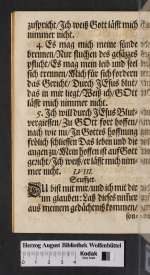 zuspricht/Ich weiß Gott läſſt mich
nimmer nicht.
4. Es mag mich meine ſünde
brennen/Nur fluchen des geſätzes
pflicht/Es mag mein leid und ſeel
ſich trennen/Mich für ſich fordern
das Gericht/Durch JEſus blut/
das in mir liegt/Weiß ich/GOtt
läſſt mich nimmer nicht.
5. Ich will durch JEſus Blut-
vergieſſen/In GOtt hier hoffen
nach wie nu/In Gottes hoffnung
frölich ſchlieſſen Das leben und die
augen zu/Mein hoffen iſt auf Gott
gericht/Ich weiß/er läſſt mich nim-
mer nicht.
LVIII.
Seufzer.
DU biſt mit mir/und ich mit dir
im glauben: Laß dieſes nim̃er
aus meinem gedächtniß kommen/
ſon-
Herzog August Bibliothek Wolfenbüttel
Kodak